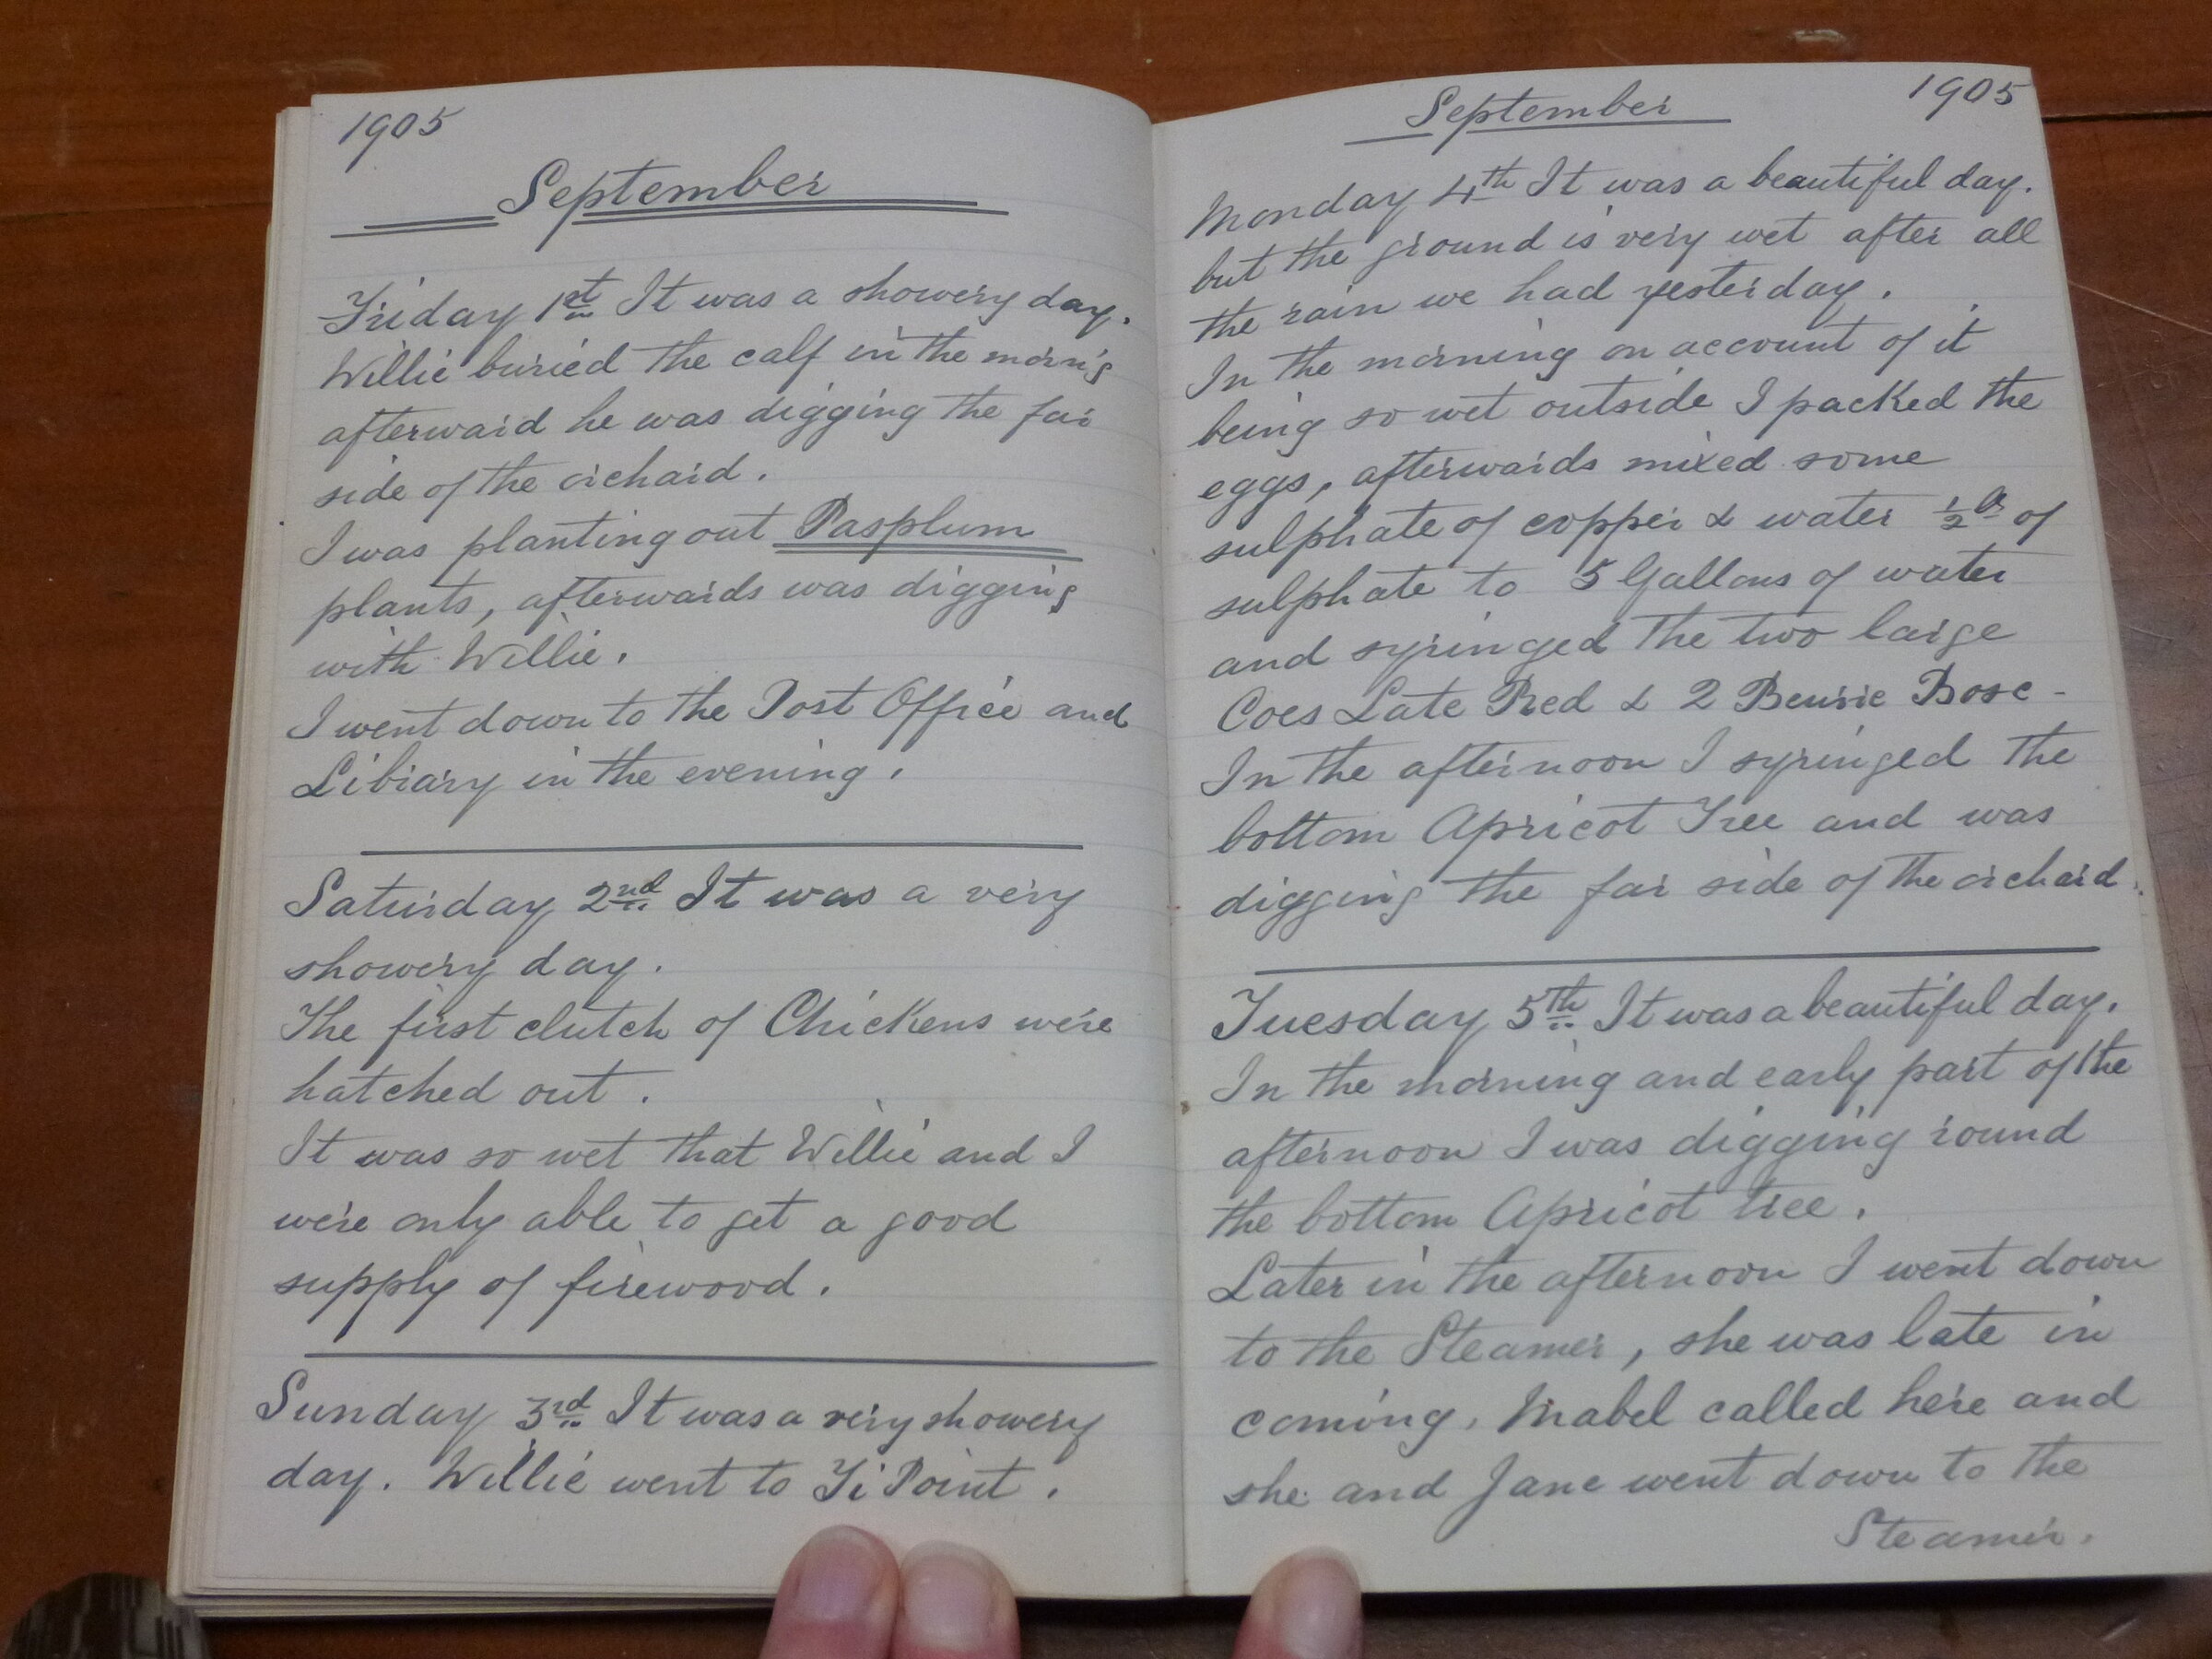 1905
September
Friday 1st It was a showery day.
Willie buried the calf in the morn'g
afterward he was digging the far
side of the orchard.
I was planting out Pasplum
plants, afterwards was digging
with Willie.
I went down to the Post Office and
Library in the evening.
Saturday 2nd It was a very
showery day.
The first clutch of Chickens were
hatched out.
It was so wet that Willie and I
were only able to get a good
supply of firewood.
Sunday 3rd It was a very showery
day. Willie went to Ti Point.
September 1905
Monday 4th It was a beautiful day.
but the ground is very wet after all
the rain we had yesterday.
In the morning on account of it
being so wet outside I packed the
eggs, afterwards mixed some
sulphate of copper & water ½ lb of
sulphate to 5 Gallons of water
and syringed the two large
Coes Late Red & 2 Beurie Bosc -
In the afternoon I syringed the
bottom Apricot Tree and was
digging the far side of the orchard.
Tuesday 5th It was a beautiful day.
In the morning and early part of the
afternoon I was digging round
the bottom Apricot tree.
Later in the afternoon I went down
to the Steamer, she was late in
coming. Mabel called here and
she and Jane went down to the
Steamer.